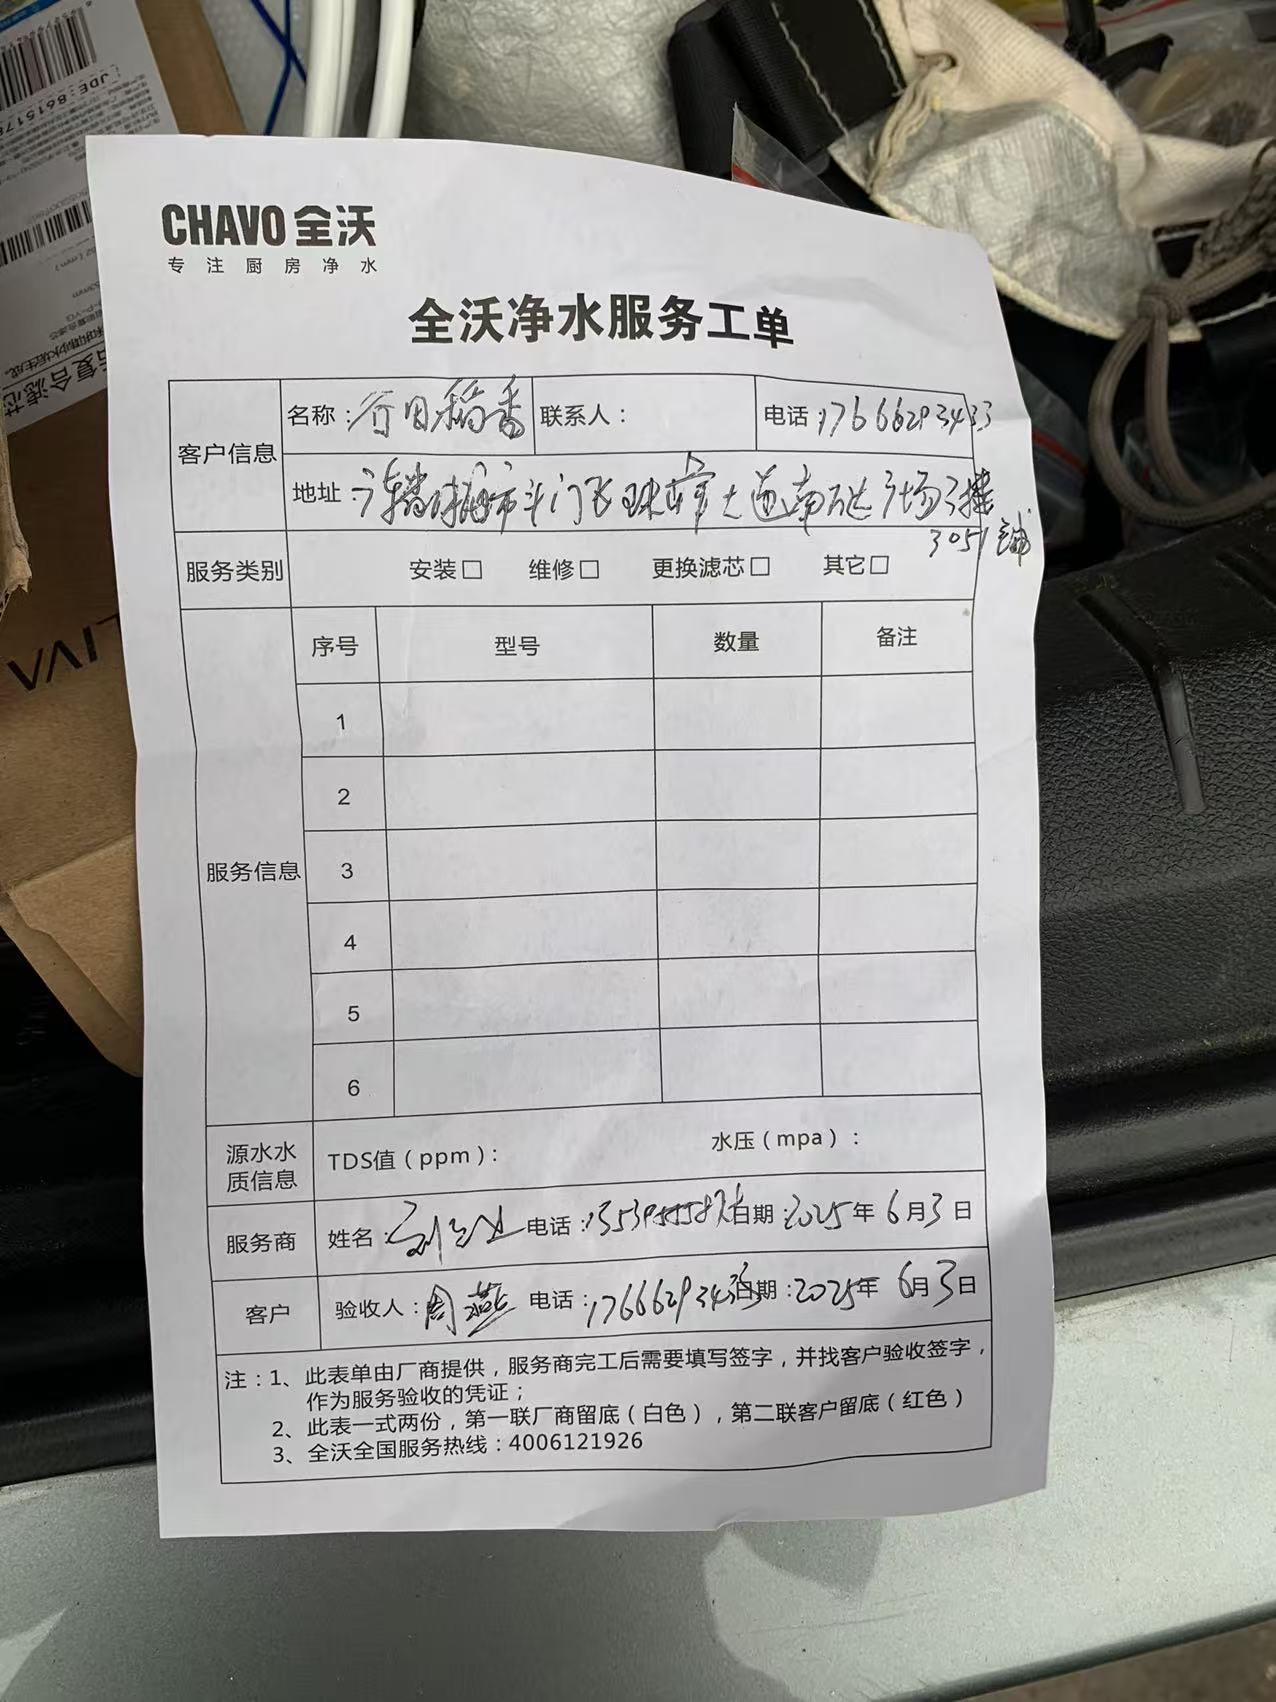 CHAVO 全沃
专注厨房净水
全沃净水服务工单
客户信息
名称：谷田稻香 联系人： 电话：17666293433
地址：广东省珠海市斗门 珠峰大道南 达广场3楼
3051铺
服务类别 安装□ 维修□ 更换滤芯□ 其它□
服务信息
序号 型号 数量 备注
1
2
3
4
5
6
源水水质信息 TDS值（ppm）： 水压（mpa）：
服务商 姓名： 电话： 日期：2025年6月3日
客户 验收人：周燕 电话：17666293433 日期：2025年6月3日
注：1、此表单由厂商提供，服务商完工后需要填写签字，并找客户验收签字，
作为服务验收的凭证；
2、此表一式两份，第一联厂商留底（白色），第二联客户留底（红色）
3、全沃全国服务热线：4006121926
JDE:861517
LIVA